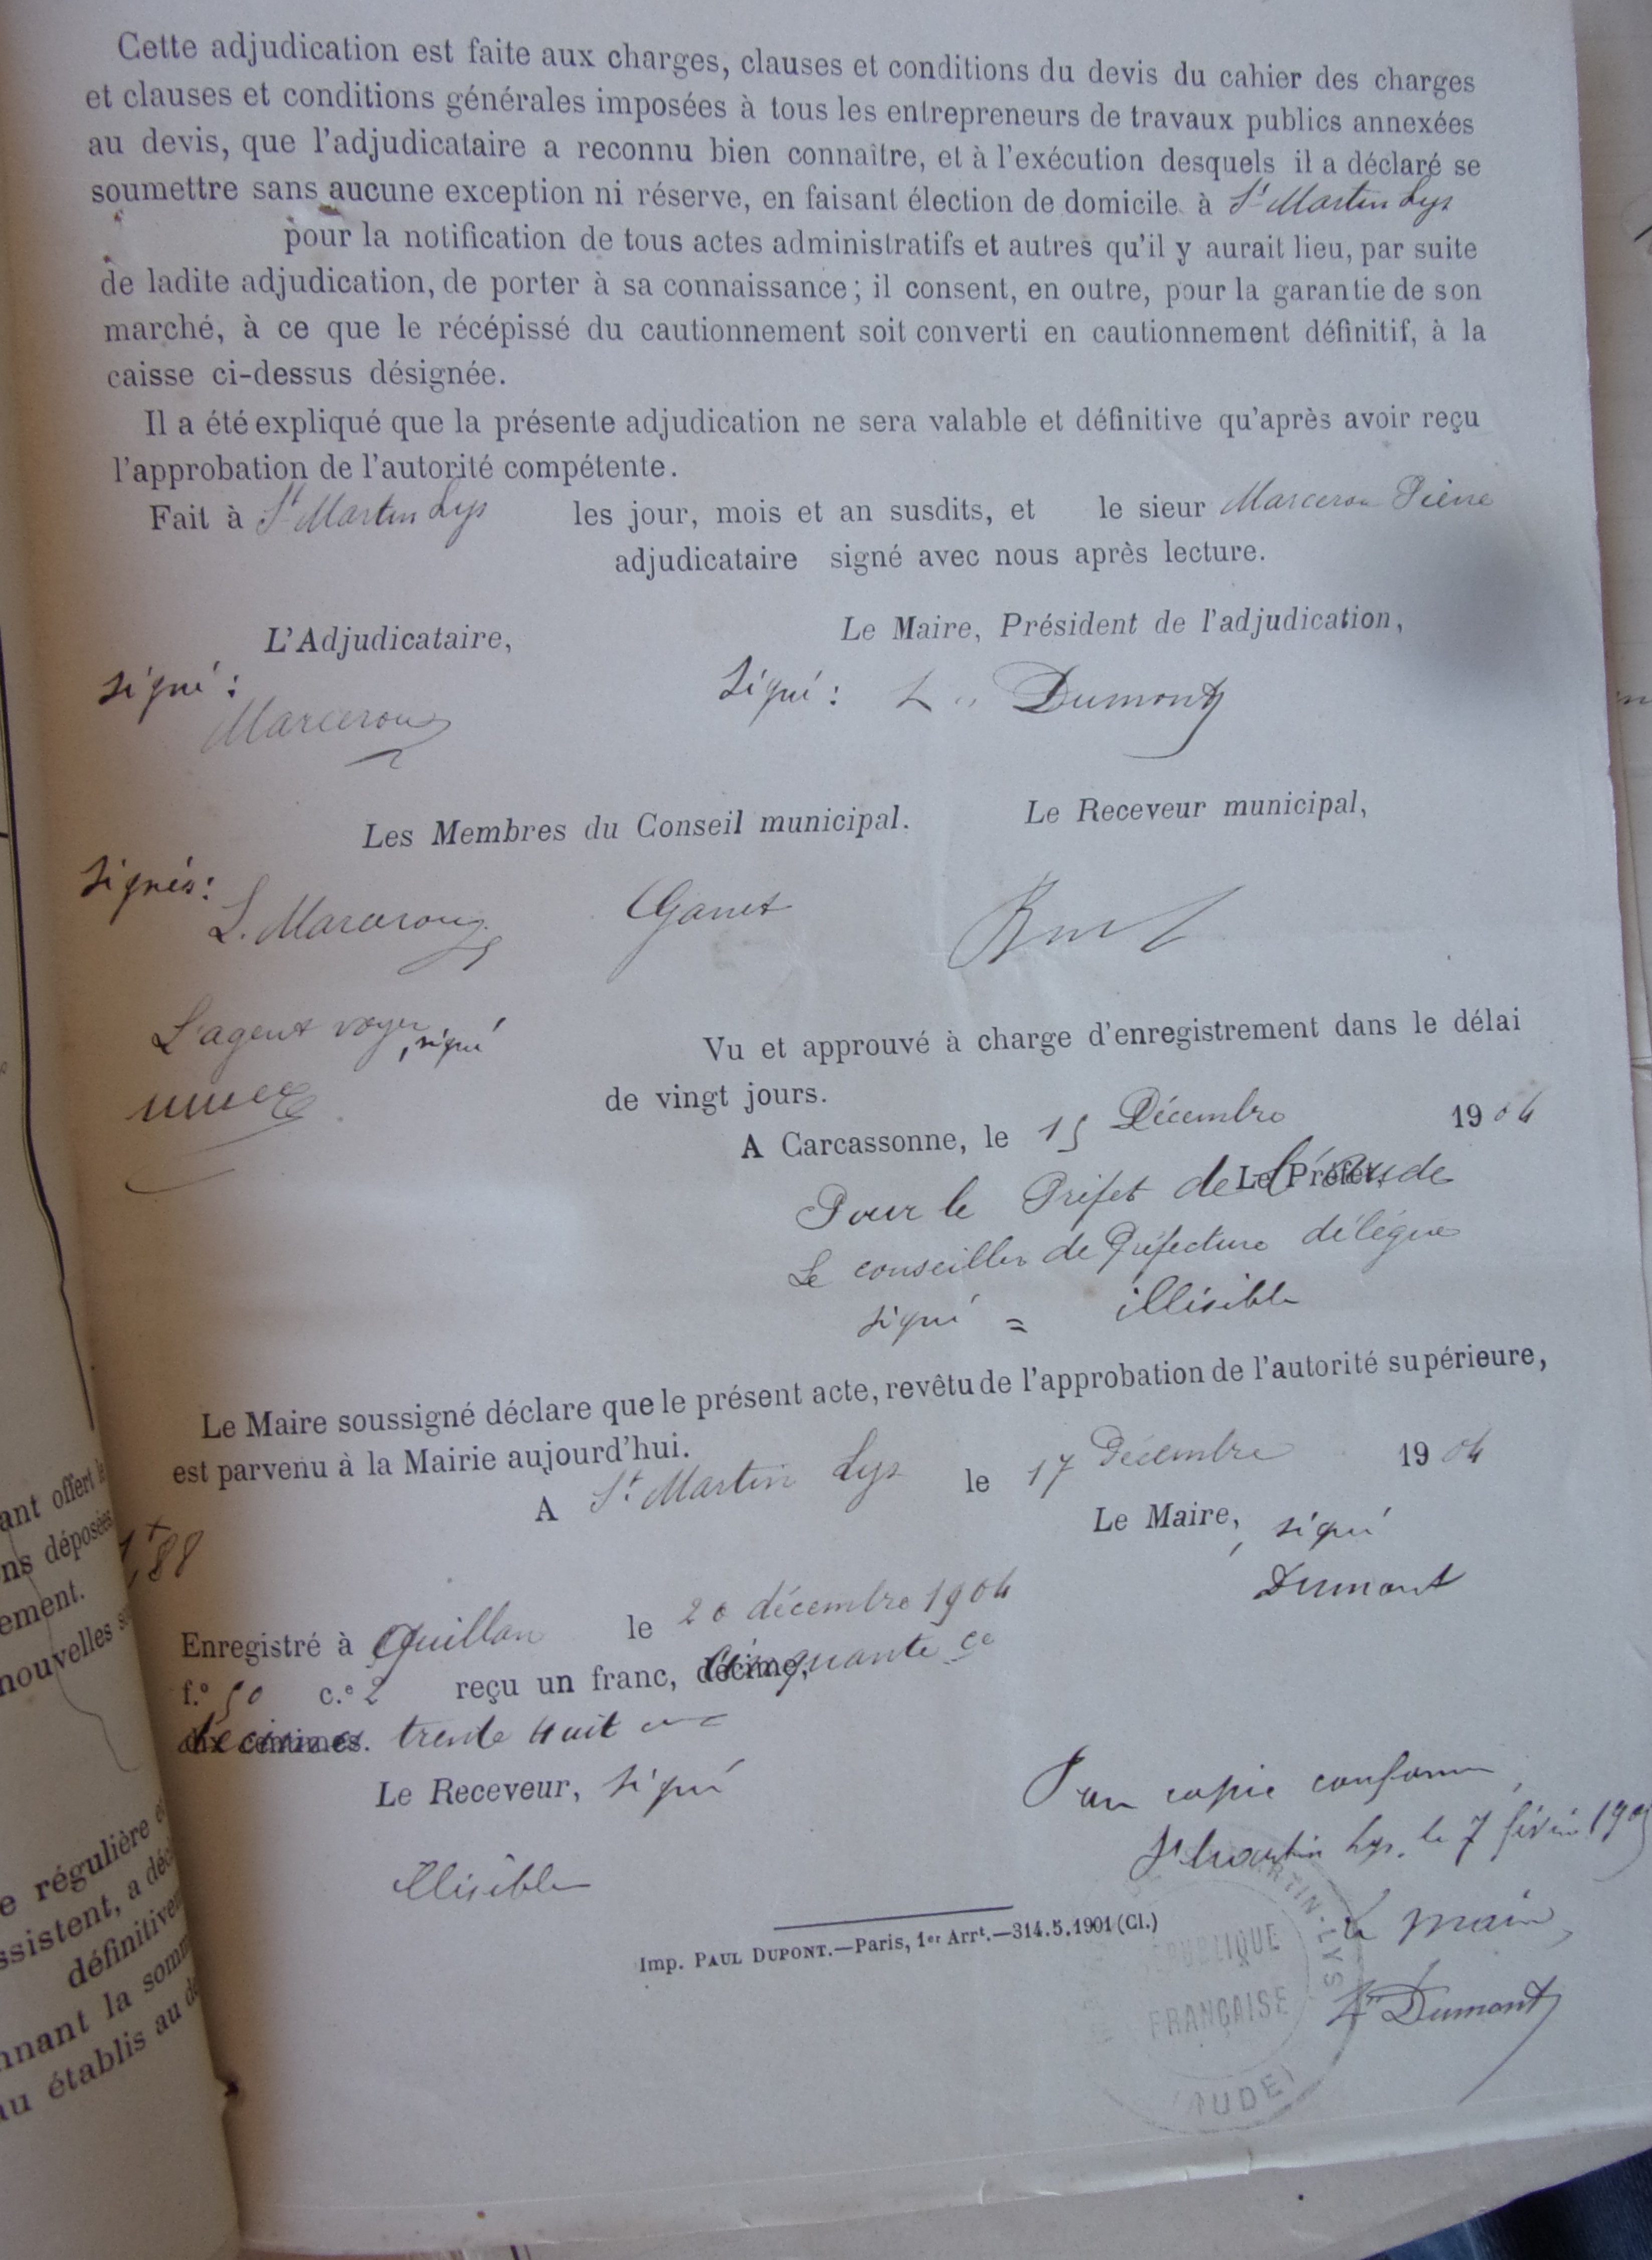 Cette adjudication est faite aux charges, clauses et conditions du devis du cahier des charges
et clauses et conditions générales imposées à tous les entrepreneurs de travaux publics annexées
au devis, que l'adjudicataire a reconnu bien connaître, et à l'exécution desquels il a déclaré se
soumettre sans aucune exception ni réserve, en faisant élection de domicile à St Martin Lys
pour la notification de tous actes administratifs et autres qu'il y aurait lieu, par suite
de ladite adjudication, de porter à sa connaissance; il consent, en outre, pour la garantie de son
marché, à ce que le récépissé du cautionnement soit converti en cautionnement définitif, à la
caisse ci-dessus désignée.
Il a été expliqué que la présente adjudication ne sera valable et définitive qu'après avoir reçu
l'approbation de l'autorité compétente.
Fait à St Martin Lys les jour, mois et an susdits, et le sieur Marcerou Pierre
adjudicataire signé avec nous après lecture.
L'Adjudicataire,
Le Maire, Président de l'adjudication,
signé :
Marcerou
signé : L. Dumont
Les Membres du Conseil municipal.
Le Receveur municipal,
signés :
L. Marcerou
L'agent voyer, signé
Vu et approuvé à charge d'enregistrement dans le délai
de vingt jours.
A Carcassonne, le 15 Décembre 1904
Le Préfet,
Pour le Préfet de l'Aude
Le conseiller de Préfecture délégué
signé = illisible
Le Maire soussigné déclare que le présent acte, revêtu de l'approbation de l'autorité supérieure,
est parvenu à la Mairie aujourd'hui.
A St Martin Lys le 17 Décembre 1904
Le Maire, signé
Dumont
88
Enregistré à Quillan le 20 décembre 1904
f.° 50 c.e 2 reçu un franc, décime, cinquante ce
dix centimes. décimes trente huit
Le Receveur, signé
illisible
Pour copie conforme,
St Martin Lys, le 7 février 190
Le Maire,
Dumont
Imp. PAUL DUPONT.—Paris, 1er Arrt.—314.5.1901 (Cl.)
MARTIN-LYS
RÉPUBLIQUE
FRANÇAISE
(AUDE)
ant offert
ns déposées
ement.
nouvelles
e régulière
ssistent, a
nnant la
au établis au